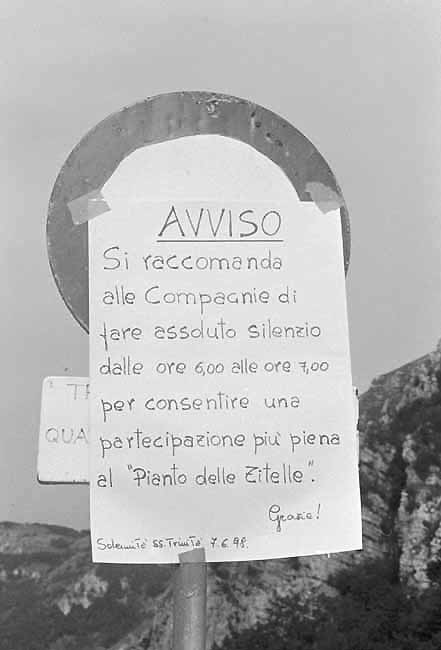 AVVISO
Si raccomanda
alle Compagnie di
fare assoluto silenzio
dalle ore 6,00 alle ore 7,00
per consentire una
partecipazione più piena
al "Pianto delle Zitelle".
Grazie!
Solennità SS. Trinità 7.6.98.
TR
QUA